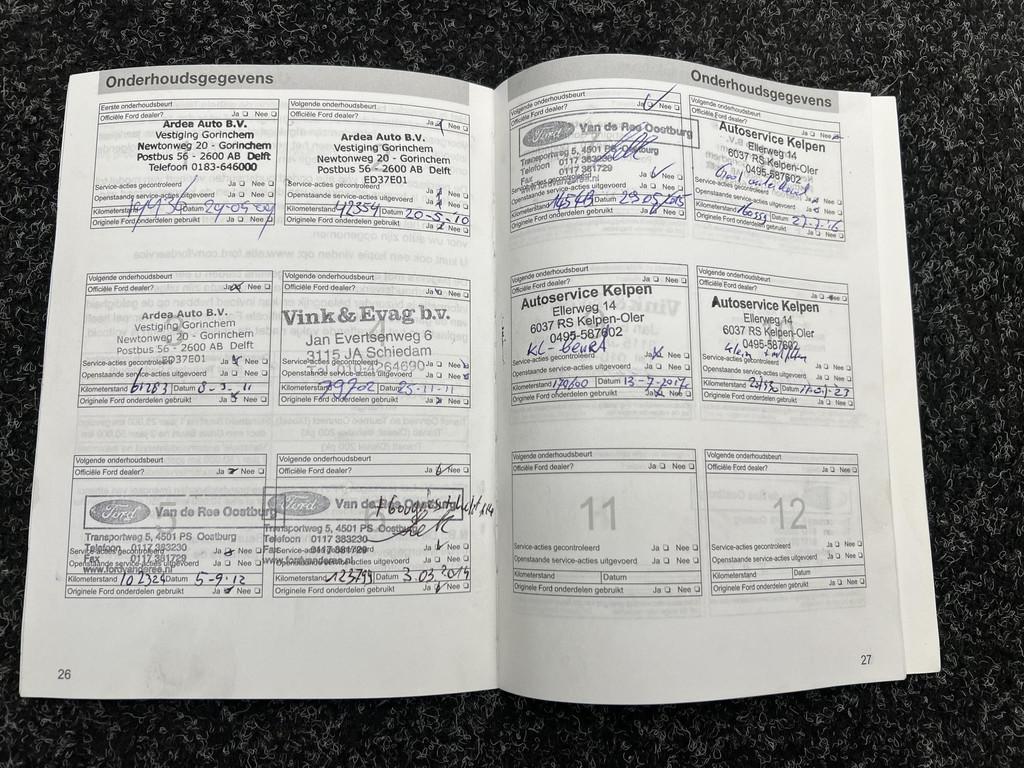 Onderhoudsgegevens
Eerste onderhoudsbeurt
Officiële Ford dealer? Ja Nee
Ardea Auto B.V.
Vestiging Gorinchem
Newtonweg 20 - Gorinchem
Postbus 56 - 2600 AB Delft
Telefoon 0183-646000
Service-acties gecontroleerd Ja Nee
Openstaande service-acties uitgevoerd Ja Nee
Kilometerstand Datum
Originele Ford onderdelen gebruikt Ja Nee
Volgende onderhoudsbeurt
Officiële Ford dealer? Ja Nee
Ardea Auto B.V.
Vestiging Gorinchem
Newtonweg 20 - Gorinchem
Postbus 56 - 2600 AB Delft
ED37E01
Service-acties gecontroleerd Ja Nee
Openstaande service-acties uitgevoerd Ja Nee
Kilometerstand 42354 Datum 20-5-10
Originele Ford onderdelen gebruikt Ja Nee
Volgende onderhoudsbeurt
Officiële Ford dealer? Ja Nee
3
Ardea Auto B.V.
Vestiging Gorinchem
Newtonweg 20 - Gorinchem
Postbus 56 - 2600 AB Delft
ED37E01
Service-acties gecontroleerd Ja Nee
Openstaande service-acties uitgevoerd Ja Nee
Kilometerstand 61283 Datum 8-3-11
Originele Ford onderdelen gebruikt Ja Nee
Volgende onderhoudsbeurt
Officiële Ford dealer? Ja Nee
4
Vink & Evag b.v.
Jan Evertsenweg 6
3115 JA Schiedam
Tel. 010-4264690
Service-acties gecontroleerd Ja Nee
Openstaande service-acties uitgevoerd Ja Nee
Kilometerstand 79202 Datum 25-11-11
Originele Ford onderdelen gebruikt Ja Nee
Volgende onderhoudsbeurt
Officiële Ford dealer? Ja Nee
5
Ford Van de Ree Oostburg
Transportweg 5, 4501 PS Oostburg
Telefoon 0117 383230
Fax 0117 381729
www.fordvanderee.nl
Service-acties gecontroleerd Ja Nee
Openstaande service-acties uitgevoerd Ja Nee
Kilometerstand 102324 Datum 5-9-12
Originele Ford onderdelen gebruikt Ja Nee
Volgende onderhoudsbeurt
Officiële Ford dealer? Ja Nee
6
Ford Van de Ree
Transportweg 5, 4501 PS Oostburg
Telefoon 0117 383230
Fax 0117 381729
www.fordvanderee.nl
Service-acties gecontroleerd Ja Nee
Openstaande service-acties uitgevoerd Ja Nee
Kilometerstand 123799 Datum 3.03.2014
Originele Ford onderdelen gebruikt Ja Nee
26
Onderhoudsgegevens
Volgende onderhoudsbeurt
Officiële Ford dealer? Ja Nee
Ford Van de Ree Oostburg
Transportweg 5, 4501 PS Oostburg
Telefoon 0117 383230
Fax 0117 381729
www.fordvanderee.nl
Service-acties gecontroleerd Ja Nee
Openstaande service-acties uitgevoerd Ja Nee
Kilometerstand Datum 29.05.2015
Originele Ford onderdelen gebruikt Ja Nee
Volgende onderhoudsbeurt
Officiële Ford dealer? Ja Nee
Autoservice Kelpen
Ellerweg 14
6037 RS Kelpen-Oler
0495-587602
Groot onderhoud
Service-acties gecontroleerd Ja Nee
Openstaande service-acties uitgevoerd Ja Nee
Kilometerstand Datum 27-7-'16
Originele Ford onderdelen gebruikt Ja Nee
Volgende onderhoudsbeurt
Officiële Ford dealer? Ja Nee
Autoservice Kelpen
Ellerweg 14
6037 RS Kelpen-Oler
0495-587602
KL-beurt
Service-acties gecontroleerd Ja Nee
Openstaande service-acties uitgevoerd Ja Nee
Kilometerstand 170100 Datum 13-7-2017
Originele Ford onderdelen gebruikt Ja Nee
Volgende onderhoudsbeurt
Officiële Ford dealer? Ja Nee
Autoservice Kelpen
Ellerweg 14
6037 RS Kelpen-Oler
0495-587602
Service-acties gecontroleerd Ja Nee
Openstaande service-acties uitgevoerd Ja Nee
Kilometerstand Datum
Originele Ford onderdelen gebruikt Ja Nee
Volgende onderhoudsbeurt
Officiële Ford dealer? Ja Nee
11
Service-acties gecontroleerd Ja Nee
Openstaande service-acties uitgevoerd Ja Nee
Kilometerstand Datum
Originele Ford onderdelen gebruikt Ja Nee
Volgende onderhoudsbeurt
Officiële Ford dealer? Ja Nee
12
Service-acties gecontroleerd Ja Nee
Openstaande service-acties uitgevoerd Ja Nee
Kilometerstand Datum
Originele Ford onderdelen gebruikt Ja Nee
27